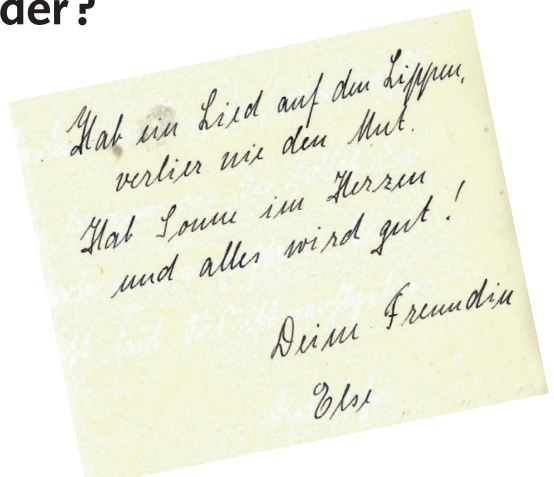 der?
Hab ein Lied auf den Lippen,
verlier nie den Mut.
Hab Sonne im Herzen
und alles wird gut!
Deine Freundin
Else